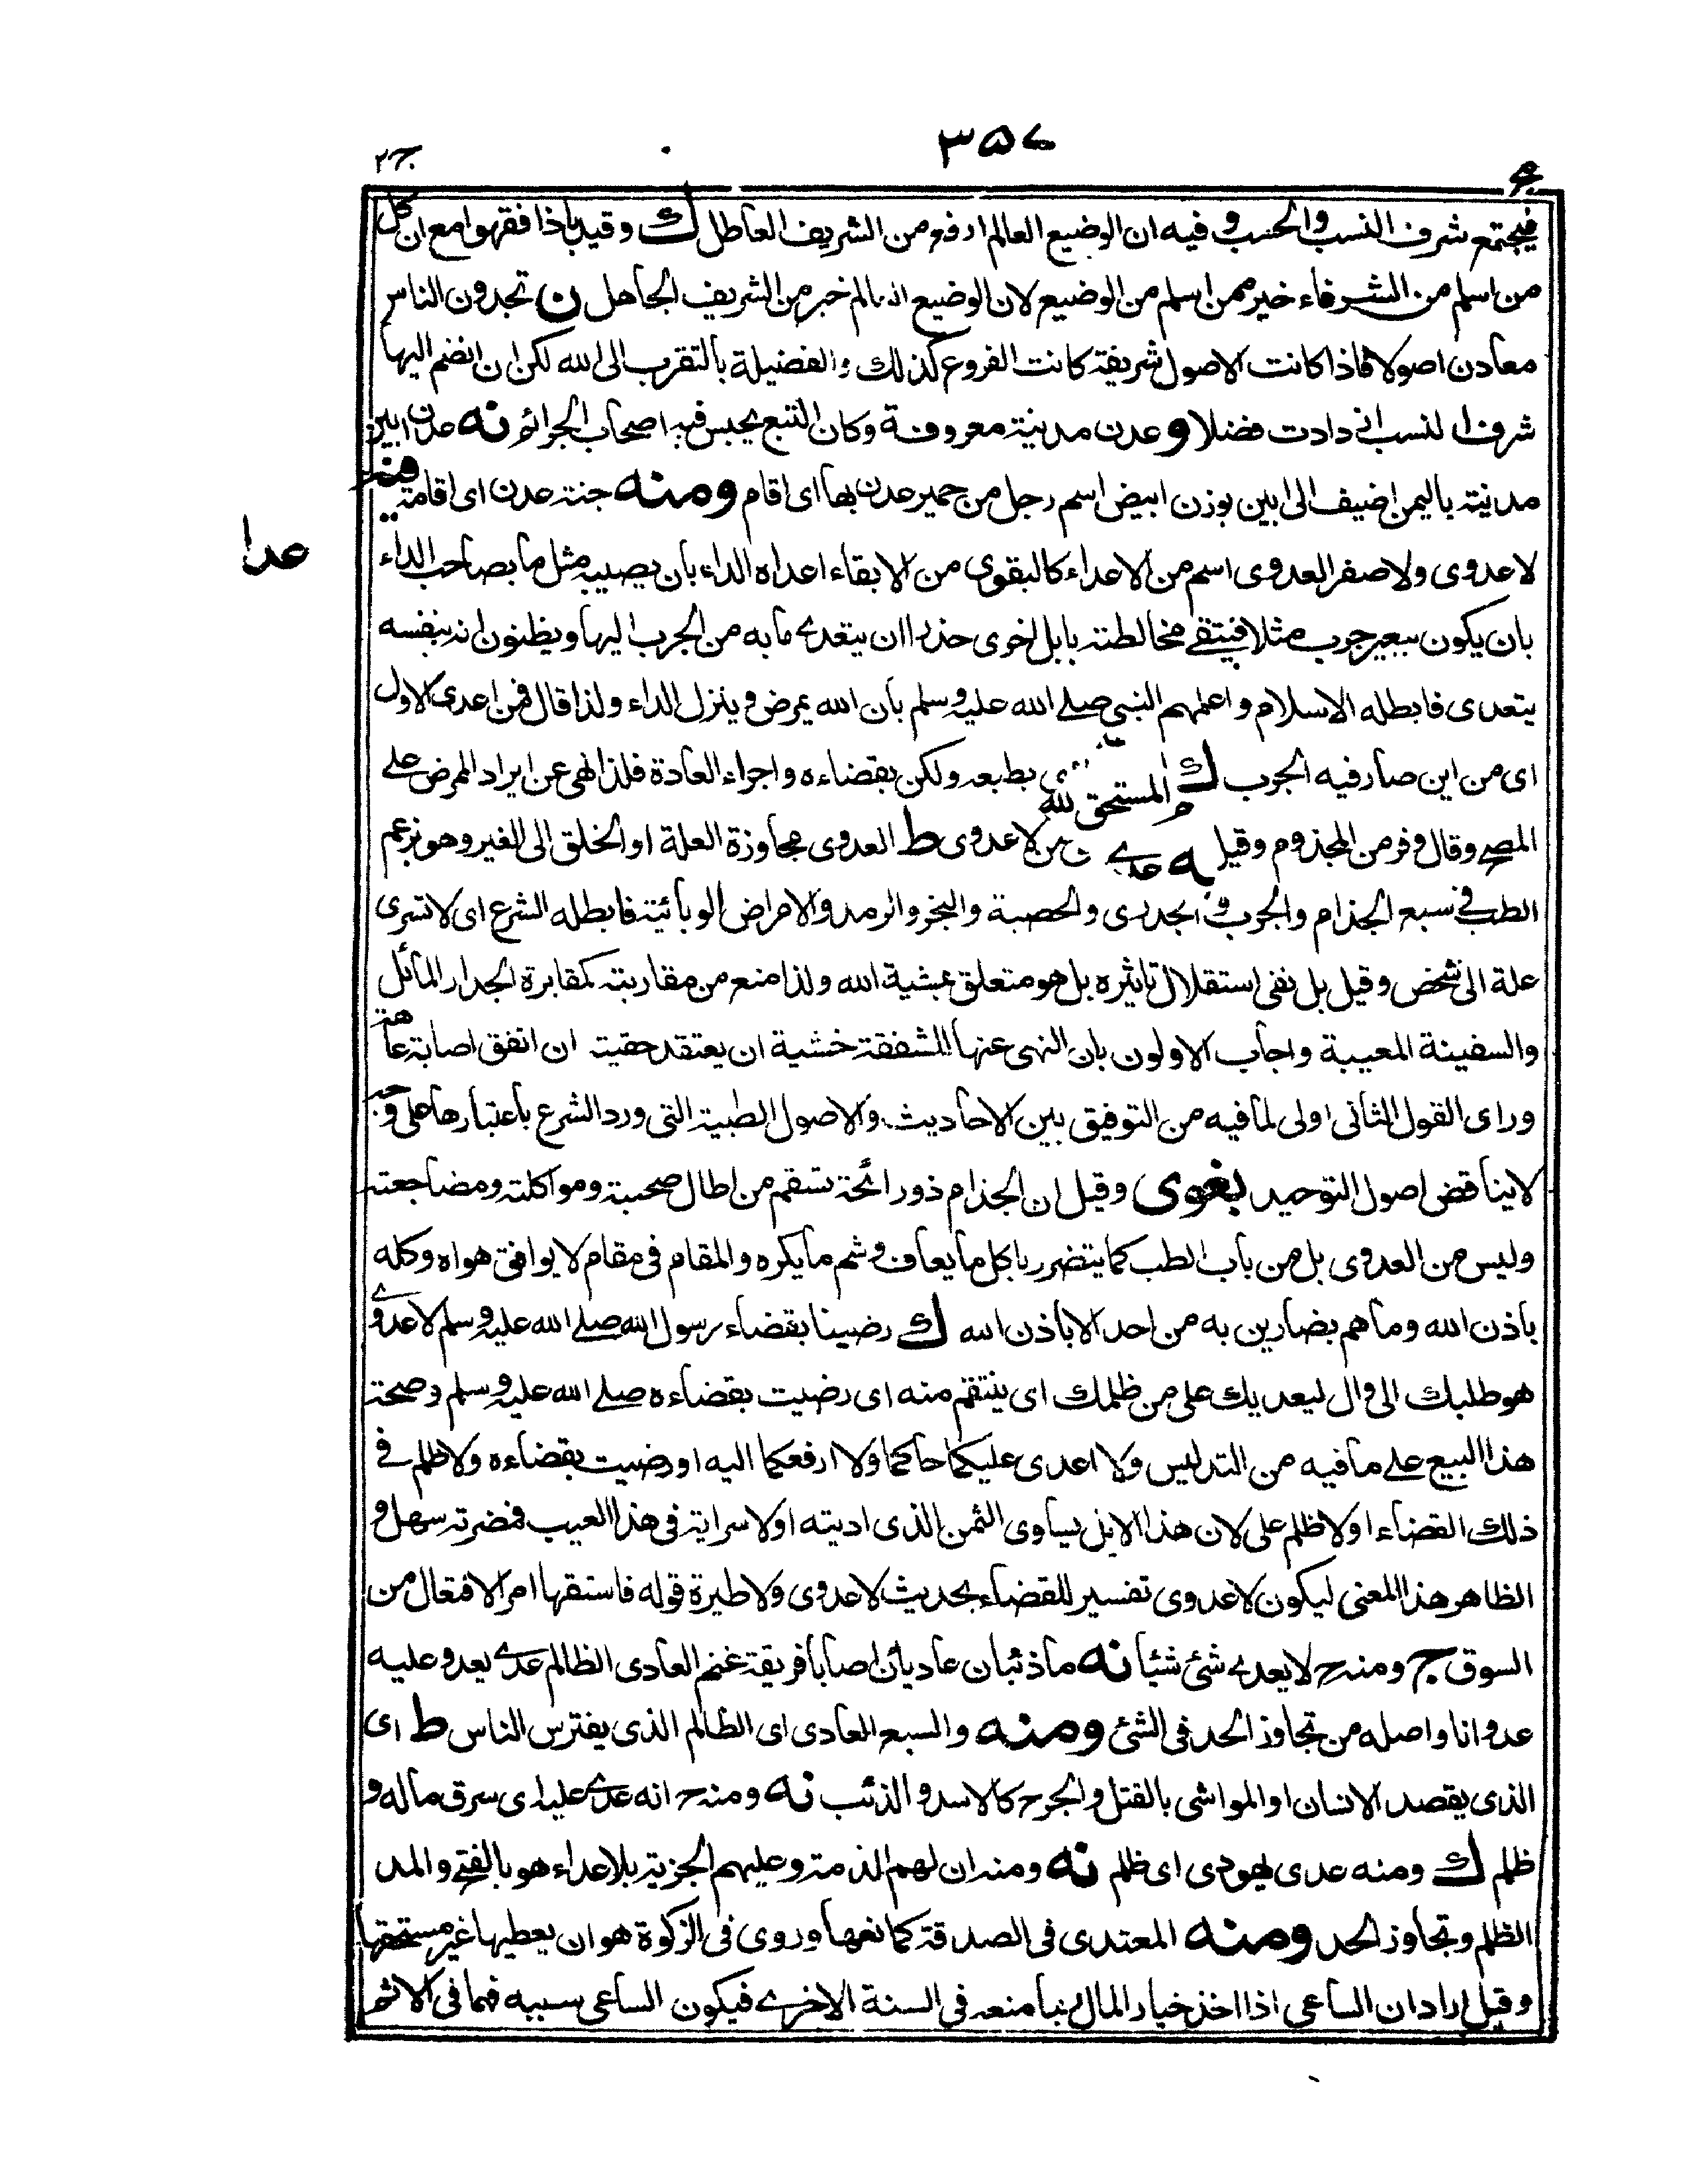 ٣٥٧
ج ٢
فيجتمع شرف النسب والحسب و فيه ان الوضيع العالم ارفع من الشريف العاطل ك وقيد باذا فقهوا مع ان كل
من اسلم من الشرفاء خير ممن اسلم من الوضيع لان الوضيع العالم خير من الشريف الجاهل ن تجدون الناس
معادن اصولا فاذا كانت الاصول شريفة كانت الفروع كذلك والفضيلة بالتقرب الى الله لكن ان انضم اليها
شرف النسب ازدادت فضلا و عدن مدينة معروفة وكان التبع يحبس فيه اصحاب الجرائم نه عدن ابين
مدينة باليمن اضيف الى ابين بوزن ابيض اسم رجل من حمير عدن بها اى اقام ومنه جنة عدن اى اقامة فيه
عدا
لا عدوى ولا صفر العدوى اسم من الاعداء كالبقوى من الابقاء اعداه الداء بان يصيبه مثل ما بصاحب الداء
بان يكون ببعير جرب مثلا فيتقى مخالطته بابل اخرى حذرا ان يتعدى ما به من الجرب اليها ويظنون انه بنفسه
يتعدى فابطله الاسلام واعلمهم النبى صلى الله عليه وسلم بان الله يمرض وينزل الداء ولذا قال فمن اعدى الاول
اى من اين صار فيه الجرب ك بطبعه ولكن بقضاءه واجراء العادة فلذا نهى عن ايراد الممرض على
المصح وقال وفر من المجذوم وقيل المستحق لله من لا عدوى ط العدوى مجاوزة العلة او الخلق الى الغير وهو بزعم
الطب فى سبع الجذام والجرب والجدرى والحصبة والبخر والرمد والامراض الوبائية فابطله الشرع اى لا تسرى
علة الى شخص وقيل بل نفى استقلال تاثيره بل هو متعلق بمشية الله ولذا منع من مقاربته كمقاربة الجدار المائل
والسفينة المعيبة واجاب الاولون بان النهى عنها للشفقة خشية ان يعتقد حقيته ان اتفق اصابة عاهة
وراى القول الثانى اولى لما فيه من التوفيق بين الاحاديث والاصول الطبية التى ورد الشرع باعتبارها على وجه
لا يناقض اصول التوحيد بغوى وقيل ان الجذام ذو رائحة تسقم من اطال صحبته ومواكلته ومضاجعته
وليس من العدوى بل من باب الطب كما يتضرر باكل ما يعاف وشم ما يكره والمقام فى مقام لا يوافق هواه وكله
باذن الله وما هم بضارين به من احد الا باذن الله ك رضينا بقضاء رسول الله صلى الله عليه وسلم لا عدوى
هو طلبك الى وال ليعديك على من ظلمك اى ينتقم منه اى رضيت بقضاءه صلى الله عليه وسلم وصحة
هذا البيع على ما فيه من التدليس ولا اعدى عليكما حاكما ولا ارفعكما اليه او رضيت بقضاءه ولا ظلم فى
ذلك القضاء او لا ظلم على لان هذا الابل يساوى الثمن الذى اديته او لا سراية فى هذا العيب فمضرته سهل و
الظاهر هذا المعنى ليكون لا عدوى تفسير للقضاء بحديث لا عدوى ولا طيرة قوله فاستقها امر الافتعال من
السوق ج ومنه ح لا يعدى شئ شيئا نه ما ذئبان عاديان اصابا فريقة غنم العادى الظالم عدى يعدو عليه
عدوانا واصله من تجاوز الحد فى الشئ ومنه والسبع العادى اى الظالم الذى يفترس الناس ط اى
الذى يقصد الانسان او المواشى بالقتل والجرح كالاسد و الذئب نه ومنه ح انه عدى عليه اى سرق ماله و
ظلم ك ومنه عدى يهودى اى ظلم نه ومنه ان لهم الذمة وعليهم الجزية بلا عداء هو بالفتح والمد
الظلم وتجاوز الحد ومنه المعتدى فى الصدقة كمانعها وروى فى الزكوة هو ان يعطيها غير مستحقها
وقيل اراد ان الساعى اذا اخذ خيار المال ربما منعه فى السنة الاخرى فيكون الساعى سببه فهما فى الاثم